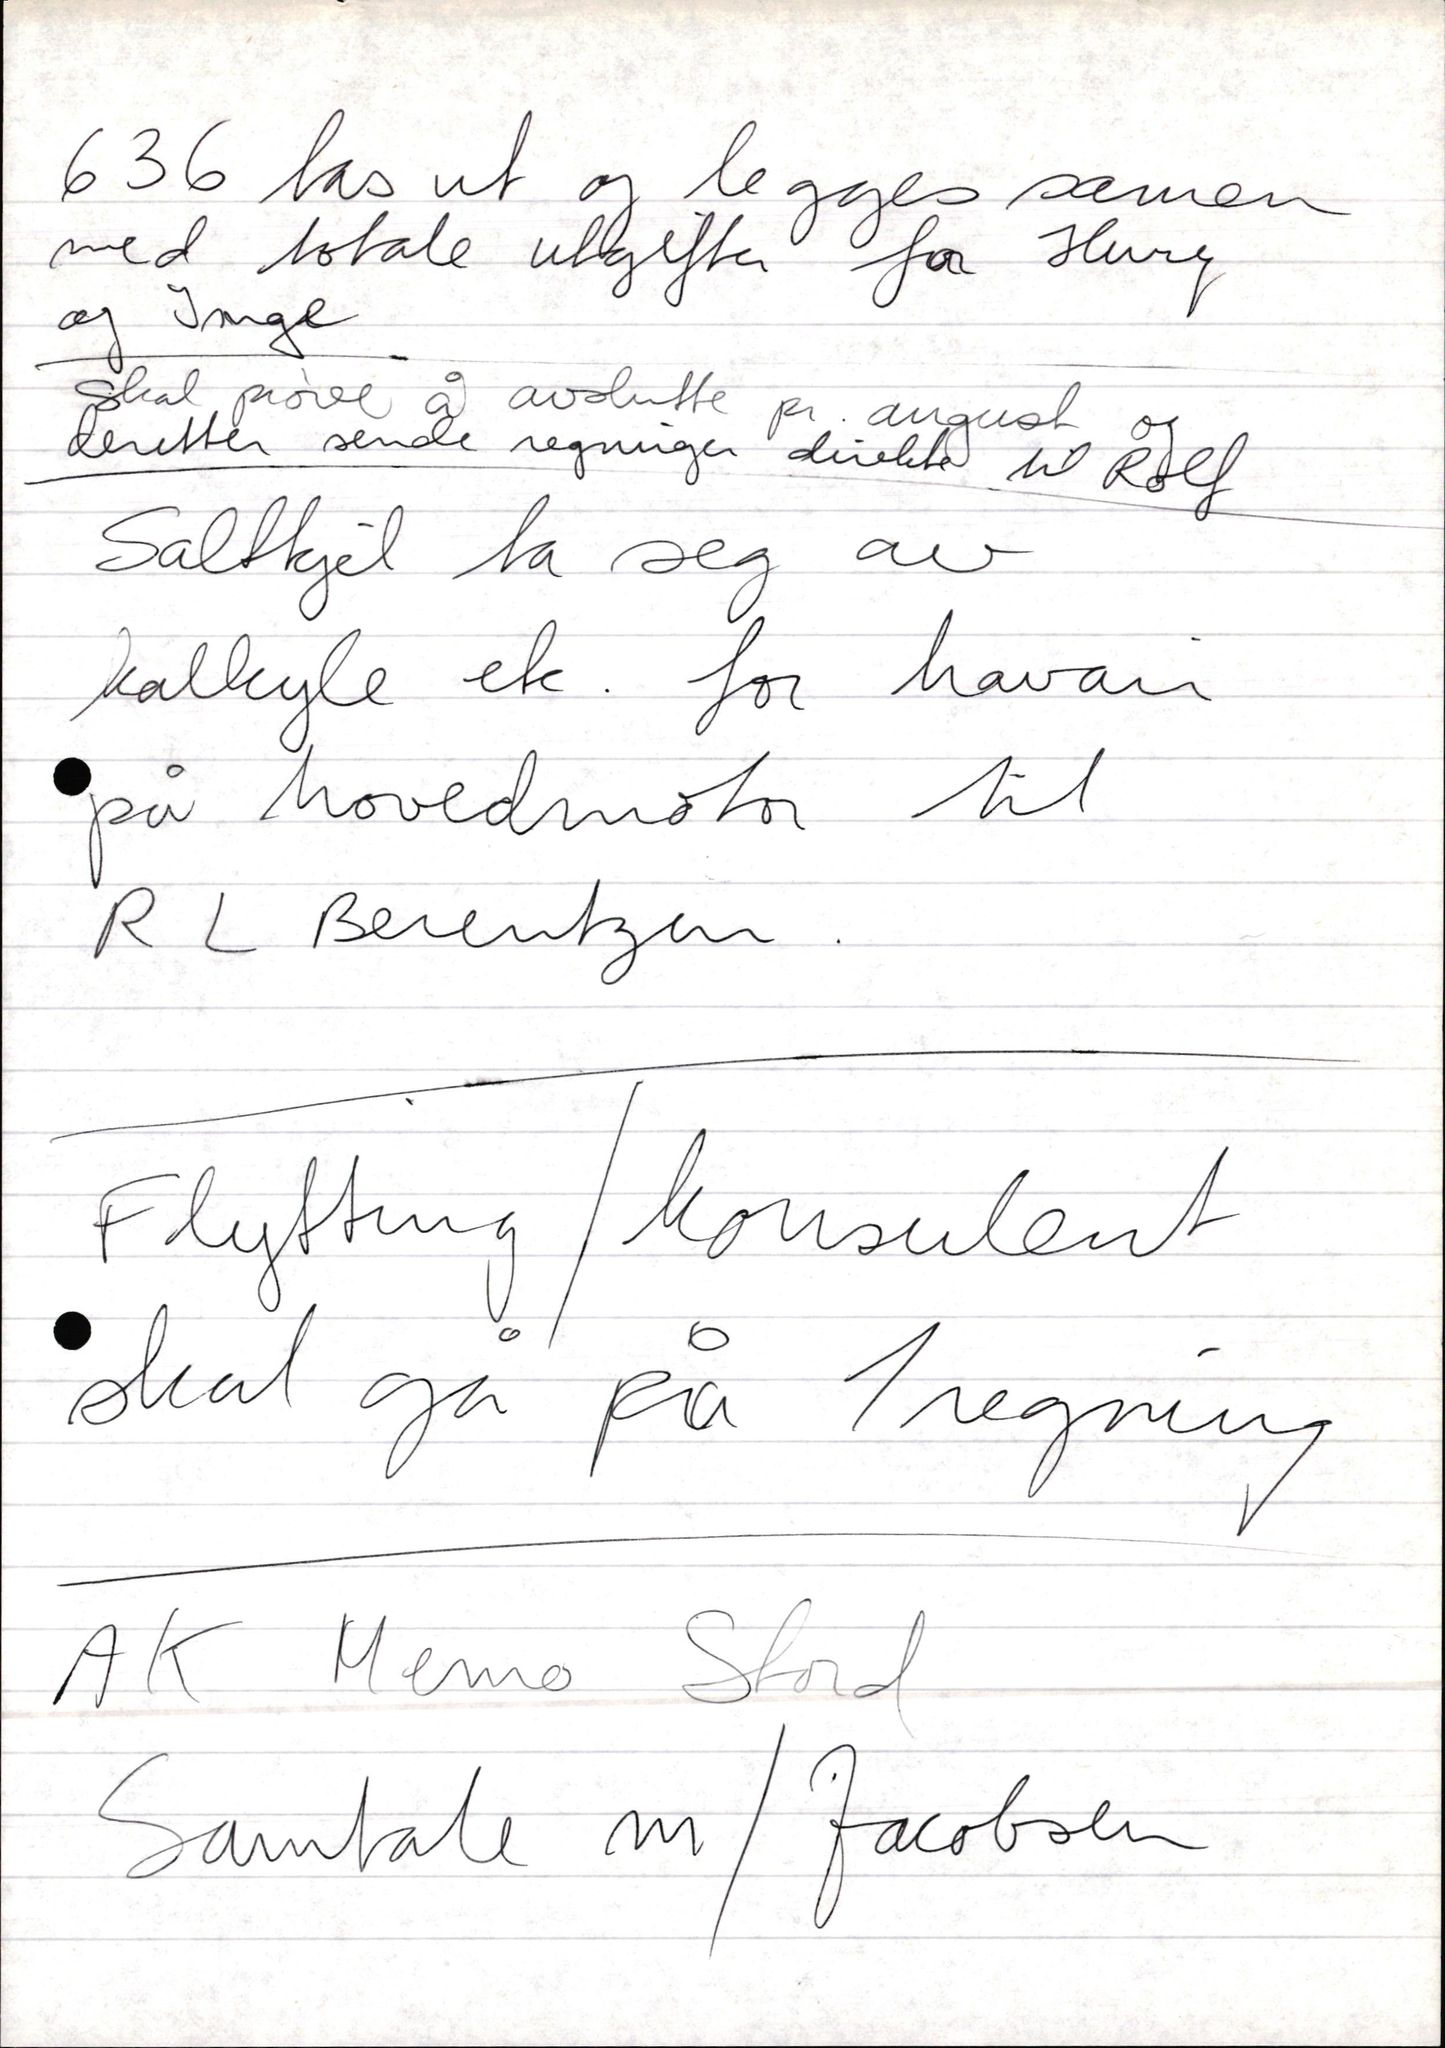 636 tas ut og legges samen
med totale utgifter for
og Inge
Skal prøve å avslutte pr. august og
deretter sende regninger direkte til Rolf
Saltkjel ta seg av
kalkyle etc. for havari
på hovedmotor til
R L Berentzen.
Flytting / konsulent
skal gå på 1 regning
AK Memo Stord
Samtale m/ Jacobsen